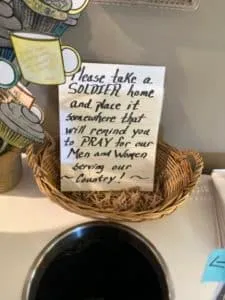 Please take a
SOLDIER home
and place it
somewhere that
will remind you
to PRAY for our
Men and Women
serving our
~ Country! ~